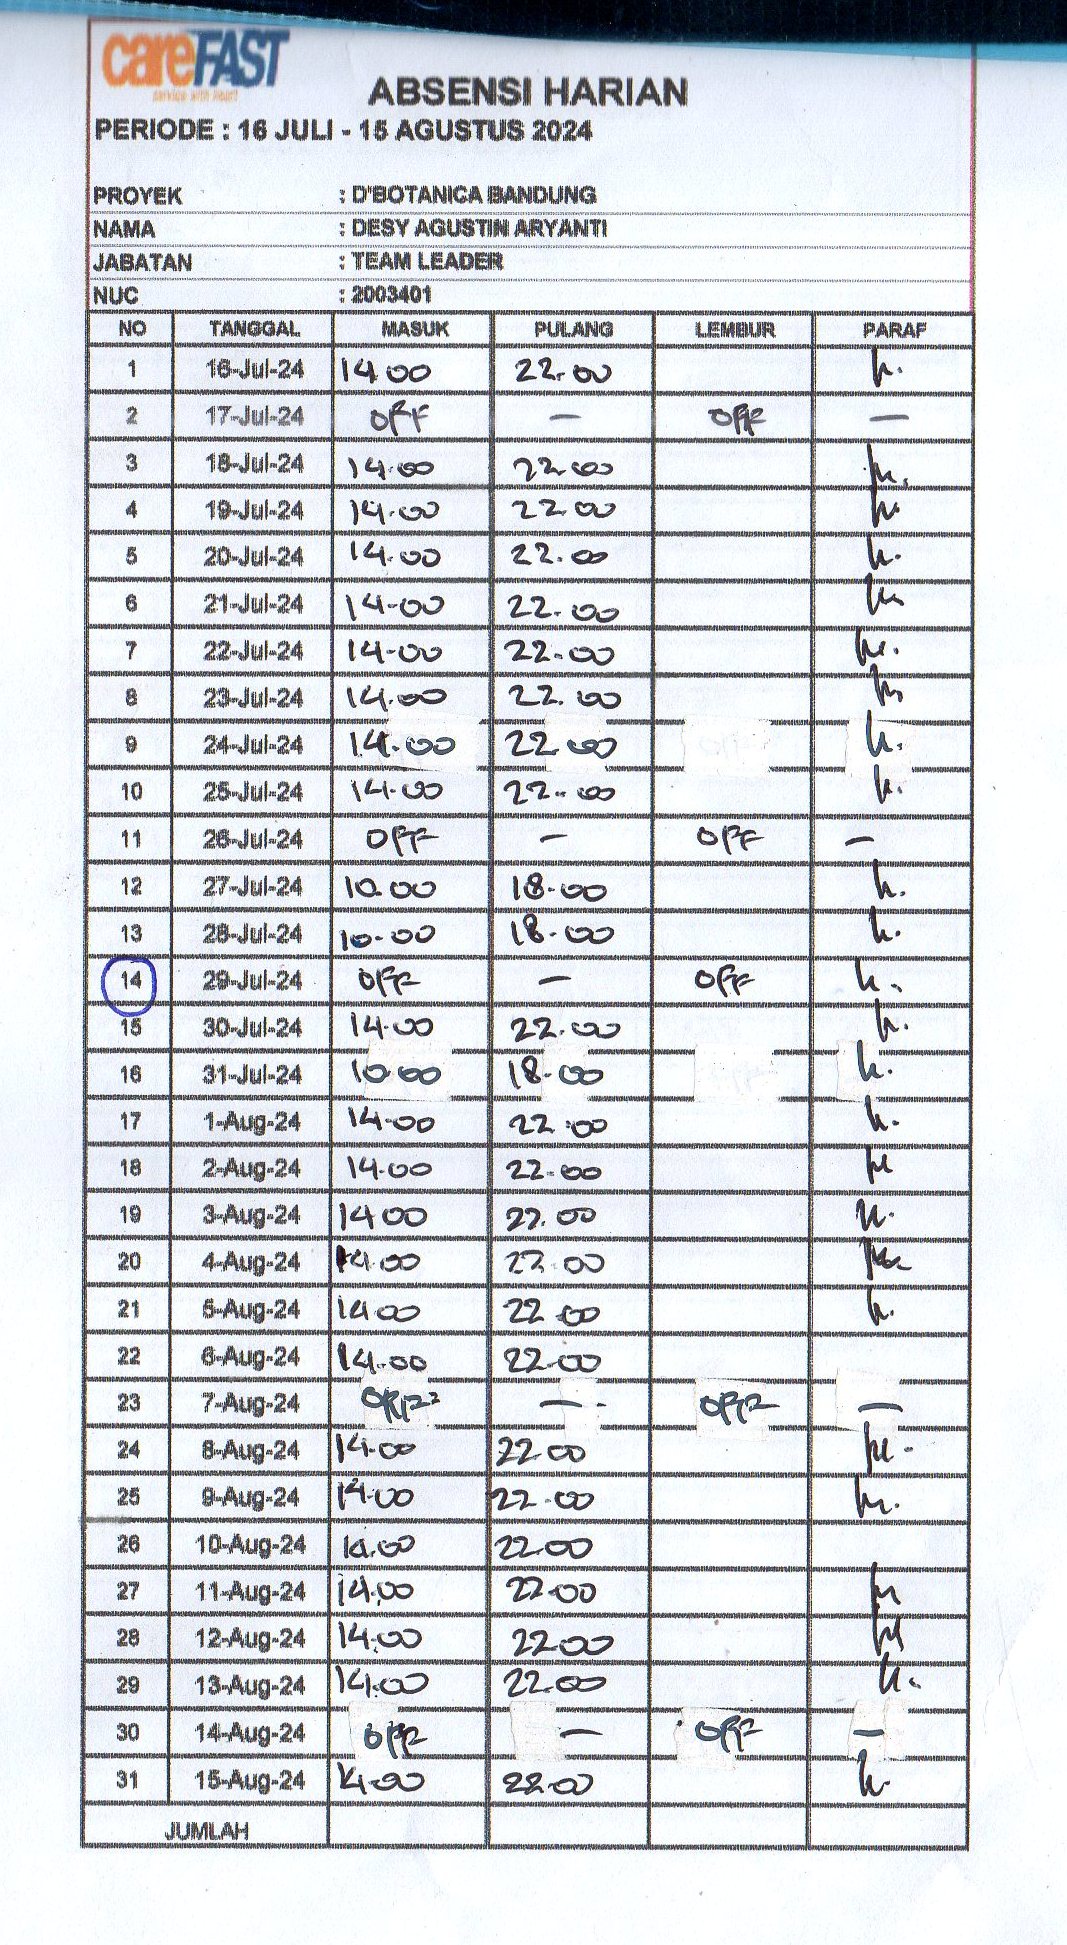 careFAST
service with heart
ABSENSI HARIAN
PERIODE : 16 JULI - 15 AGUSTUS 2024
PROYEK : D'BOTANICA BANDUNG
NAMA : DESY AGUSTIN ARYANTI
JABATAN : TEAM LEADER
NUC : 2003401
NO TANGGAL MASUK PULANG LEMBUR PARAF
1 16-Jul-24 14.00 22.00
2 17-Jul-24 OFF — OFF —
3 18-Jul-24 14.00 22.00
4 19-Jul-24 14.00 22.00
5 20-Jul-24 14.00 22.00
6 21-Jul-24 14-00 22.00
7 22-Jul-24 14-00 22.00
8 23-Jul-24 14.00 22.00
9 24-Jul-24 14.00 22.00
10 25-Jul-24 14.00 22.00
11 26-Jul-24 OFF — OFF —
12 27-Jul-24 10.00 18.00
13 28-Jul-24 10-00 18-00
14 29-Jul-24 OFF — OFF
15 30-Jul-24 14.00 22.00
16 31-Jul-24 10.00 18-00
17 1-Aug-24 14-00 22.00
18 2-Aug-24 14-00 22.00
19 3-Aug-24 14 00 22.00
20 4-Aug-24 14.00 22.00
21 5-Aug-24 14.00 22.00
22 6-Aug-24 14.00 22.00
23 7-Aug-24 OFF — OFF —
24 8-Aug-24 14.00 22.00
25 9-Aug-24 14.00 22.00
26 10-Aug-24 14.00 22.00
27 11-Aug-24 14.00 22.00
28 12-Aug-24 14.00 22.00
29 13-Aug-24 14.00 22.00
30 14-Aug-24 OFF — OFF —
31 15-Aug-24 14.00 22.00
JUMLAH